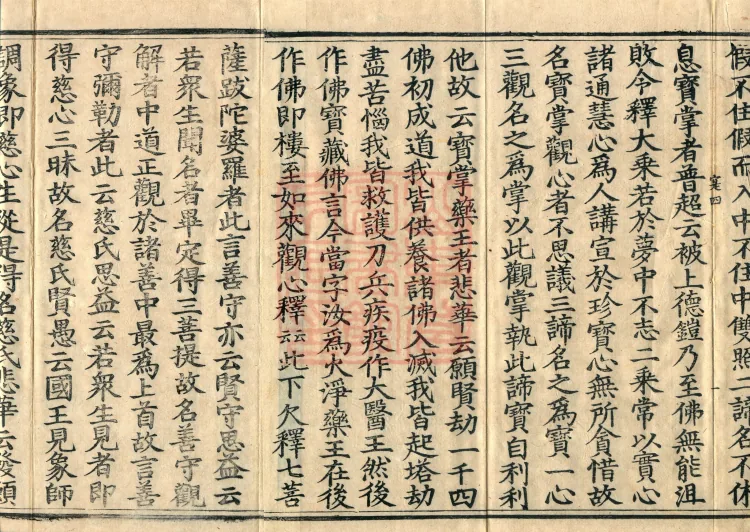 假不住假而入中不住中雙照二諦名不休
息寶掌者普超云被上德鎧乃至佛無能沮
敗令釋大乘若於夢中不志二乘常以實心
諸通慧心為人講宣於珍寶心無所貪惜故
名寶掌觀心者不思議三諦名之為寶一心
三觀名之為掌以此觀掌執此諦寶自利利
他故云寶掌藥王者悲華云願賢劫一千四
佛初成道我皆供養諸佛入滅我皆起塔劫
盡苦惱我皆救護刀兵疾疫作大醫王然後
作佛寶藏佛言今當字汝為火淨藥王在後
作佛即樓至如來觀心釋云云此下欠釋七菩
薩跋陀婆羅者此言善守亦云賢守思益云
若眾生聞名者畢定得三菩提故名善守觀
解者中道正觀於諸善中最為上首故言善
守彌勒者此云慈氏思益云若眾生見者即
得慈心三昧故名慈氏賢愚云國王見象師
調象即慈心生從是得名慈氏悲華云發願
寔四